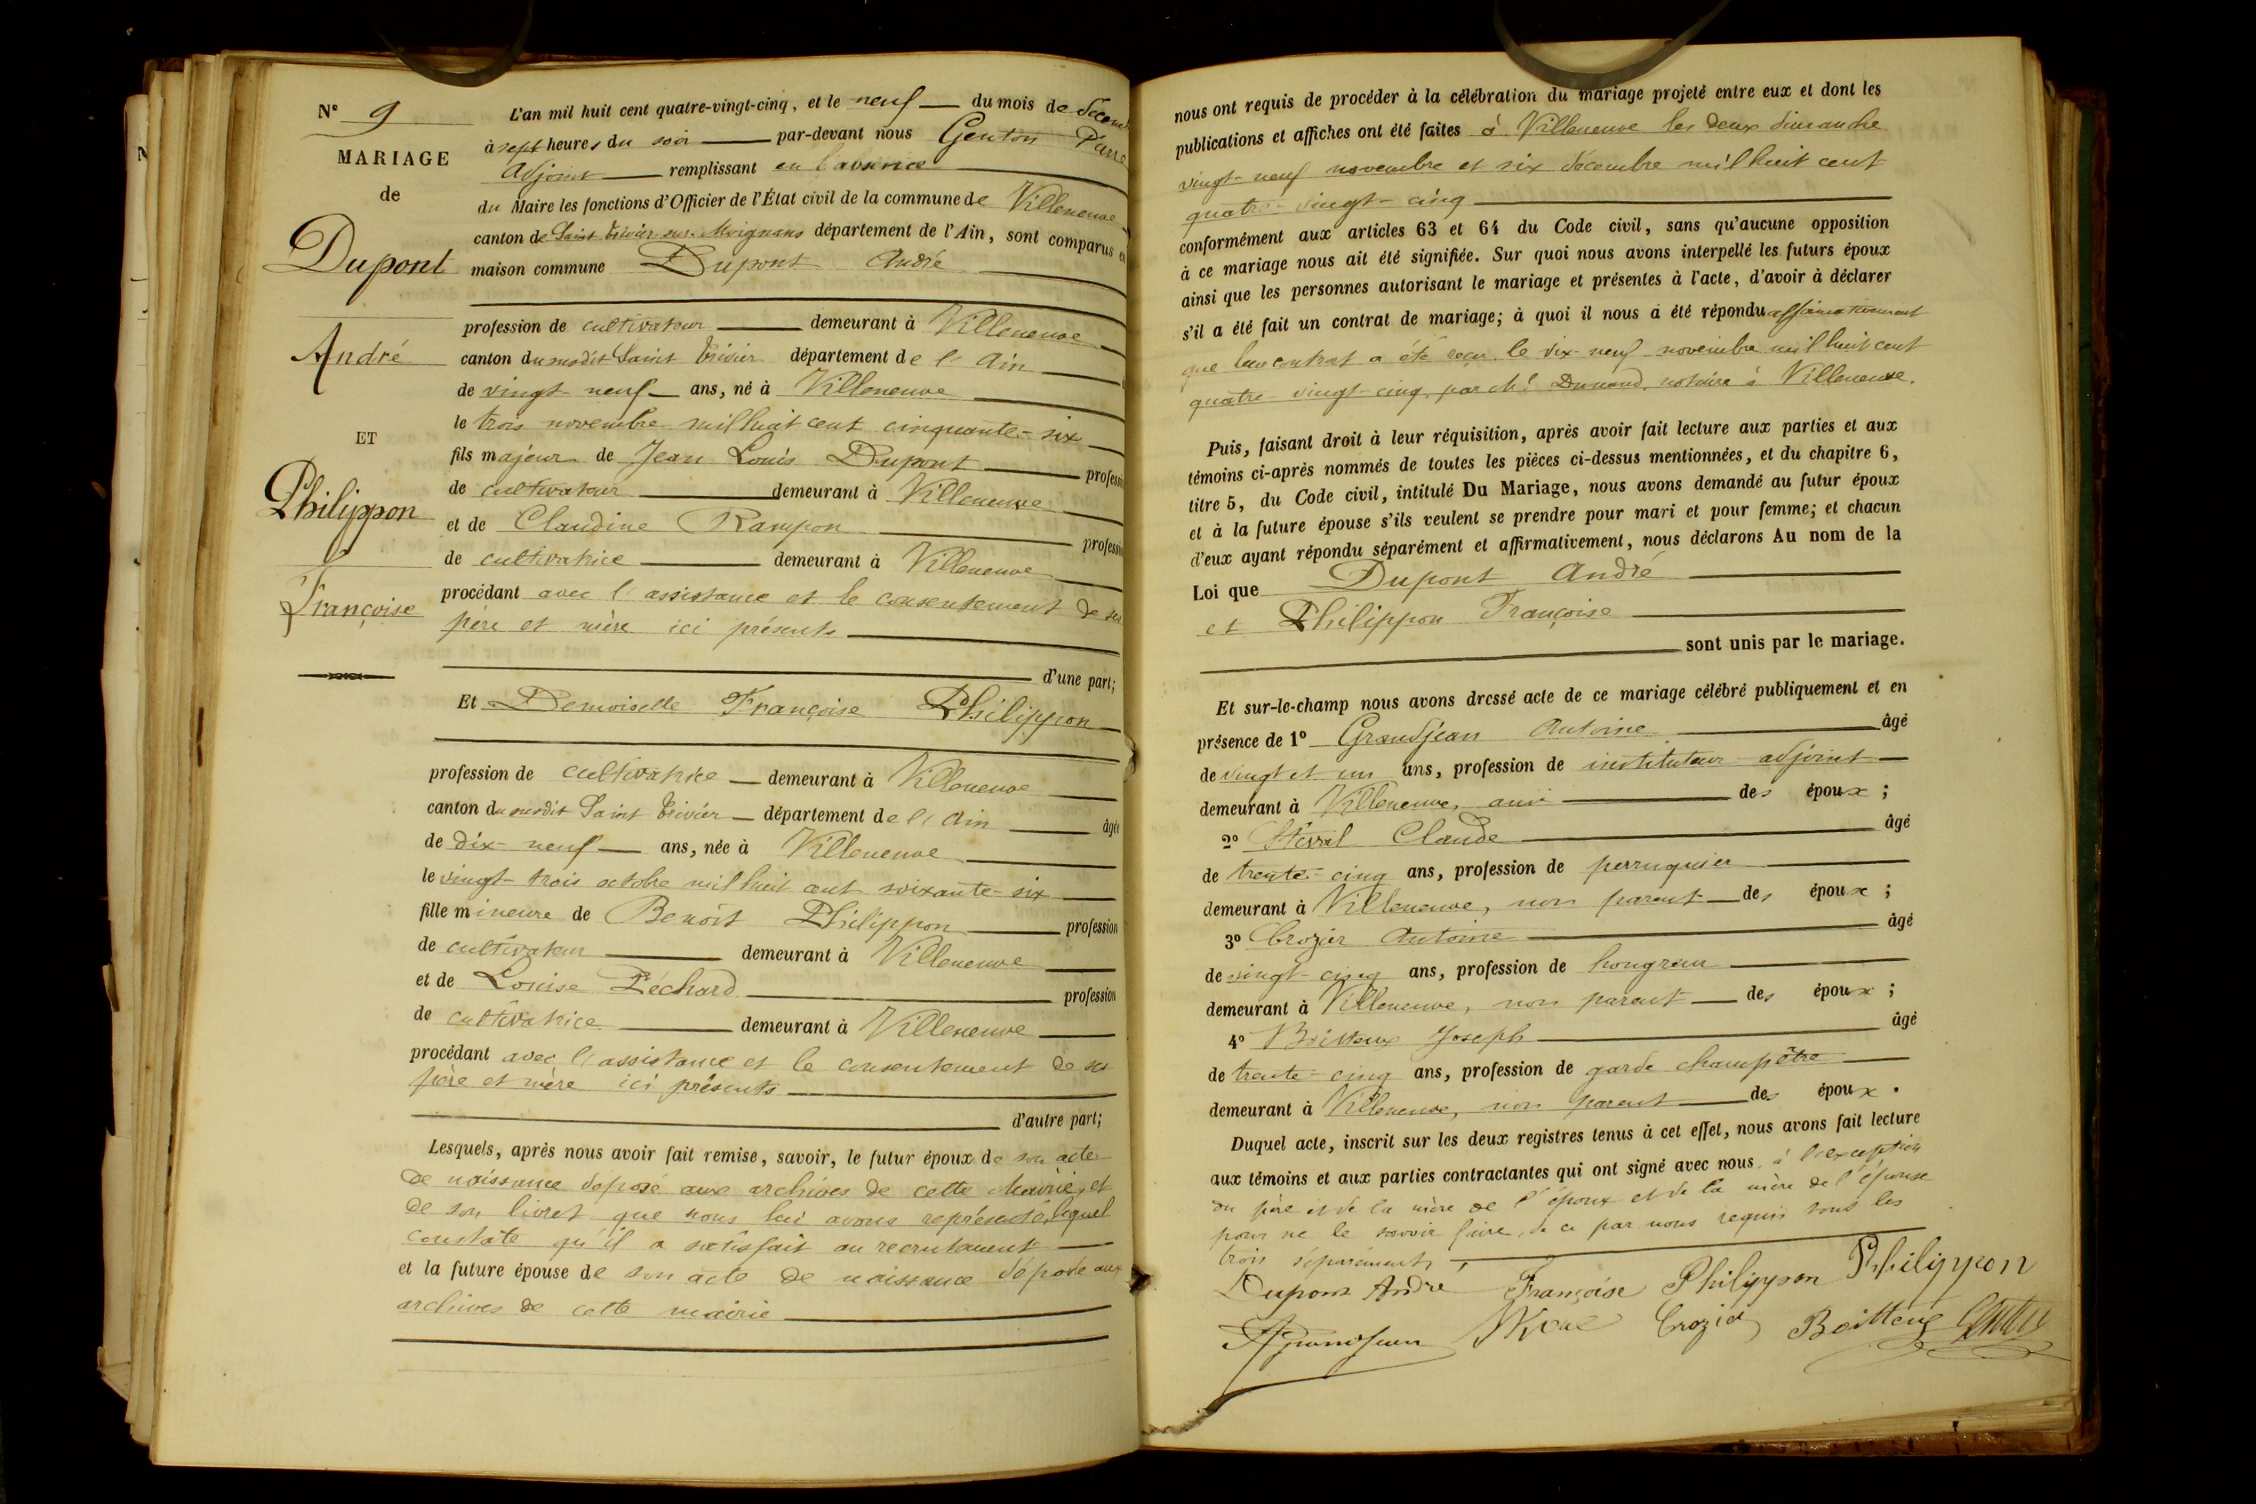 N° 9
MARIAGE
de
Dupont
André
ET
Philippon
Françoise
L'an mil huit cent quatre-vingt-cinq, et le neuf du mois de décem
à sept heures du soir par-devant nous Genton
Adjoint remplissant en l'absence
du Maire les fonctions d'Officier de l'État civil de la commune de Villeneuve
canton de Saint Trivier sur Moignans département de l'Ain, sont comparus en
maison commune Dupont André
profession de cultivateur demeurant à Villeneuve
canton du susdit Saint Trivier département de l'Ain
de vingt neuf ans, né à Villeneuve
le trois novembre mil huit cent cinquante-six
fils majeur de Jean Louis Dupont professi
de cultivateur demeurant à Villeneuve
et de Claudine Rampon professi
de cultivatrice demeurant à Villeneuve
procédant avec l'assistance et le consentement de ses
père et mère ici présents
d'une part;
Et Demoiselle Françoise Philippon
profession de cultivatrice demeurant à Villeneuve
canton du susdit Saint Trivier département de l'Ain âgée
de dix-neuf ans, née à Villeneuve
le vingt-trois octobre mil huit cent soixante-six
fille mineure de Benoît Philippon profession
de cultivateur demeurant à Villeneuve
et de Louise Péchard profession
de cultivatrice demeurant à Villeneuve
procédant avec l'assistance et le consentement de ses
père et mère ici présents
d'autre part;
Lesquels, après nous avoir fait remise, savoir, le futur époux de son acte
de naissance déposé aux archives de cette Mairie, et
de son livret que nous lui avons représenté, lequel
constate qu'il a satisfait au recrutement
et la future épouse de son acte de naissance déposé aux
archives de cette mairie
nous ont requis de procéder à la célébration du mariage projeté entre eux et dont les
publications et affiches ont été faites à Villeneuve les deux dimanche
vingt-neuf novembre et six décembre mil huit cent
quatre-vingt-cinq
conformément aux articles 63 et 64 du Code civil, sans qu'aucune opposition
à ce mariage nous ait été signifiée. Sur quoi nous avons interpellé les futurs époux
ainsi que les personnes autorisant le mariage et présentes à l'acte, d'avoir à déclarer
s'il a été fait un contrat de mariage; à quoi il nous a été répondu affirmativement
que leur contrat a été reçu le dix-neuf novembre mil huit cent
quatre-vingt-cinq, par Me Dunand, notaire à Villeneuve.
Puis, faisant droit à leur réquisition, après avoir fait lecture aux parties et aux
témoins ci-après nommés de toutes les pièces ci-dessus mentionnées, et du chapitre 6,
titre 5, du Code civil, intitulé Du Mariage, nous avons demandé au futur époux
et à la future épouse s'ils veulent se prendre pour mari et pour femme; et chacun
d'eux ayant répondu séparément et affirmativement, nous déclarons Au nom de la
Loi que Dupont André
et Philippon Françoise
sont unis par le mariage.
Et sur-le-champ nous avons dressé acte de ce mariage célébré publiquement et en
présence de 1° Grandjean Antoine âgé
de vingt et un ans, profession de instituteur adjoint
demeurant à Villeneuve, ami des époux;
2° Claude âgé
de trente-cinq ans, profession de perruquier
demeurant à Villeneuve, non parent des époux;
3° Crozier Antoine âgé
de vingt-cinq ans, profession de hongreur
demeurant à Villeneuve, non parent des époux;
4° Boitteux Joseph âgé
de trente-cinq ans, profession de garde champêtre
demeurant à Villeneuve, non parent des époux.
Duquel acte, inscrit sur les deux registres tenus à cet effet, nous avons fait lecture
aux témoins et aux parties contractantes qui ont signé avec nous, à l'exception
du père et de la mère de l'époux et de la mère de l'épouse
pour ne le savoir faire, de ce par nous requis tous les
trois séparément,
Dupont André Françoise Philippon Philippon
Grandjean Crozier Boitteux Genton